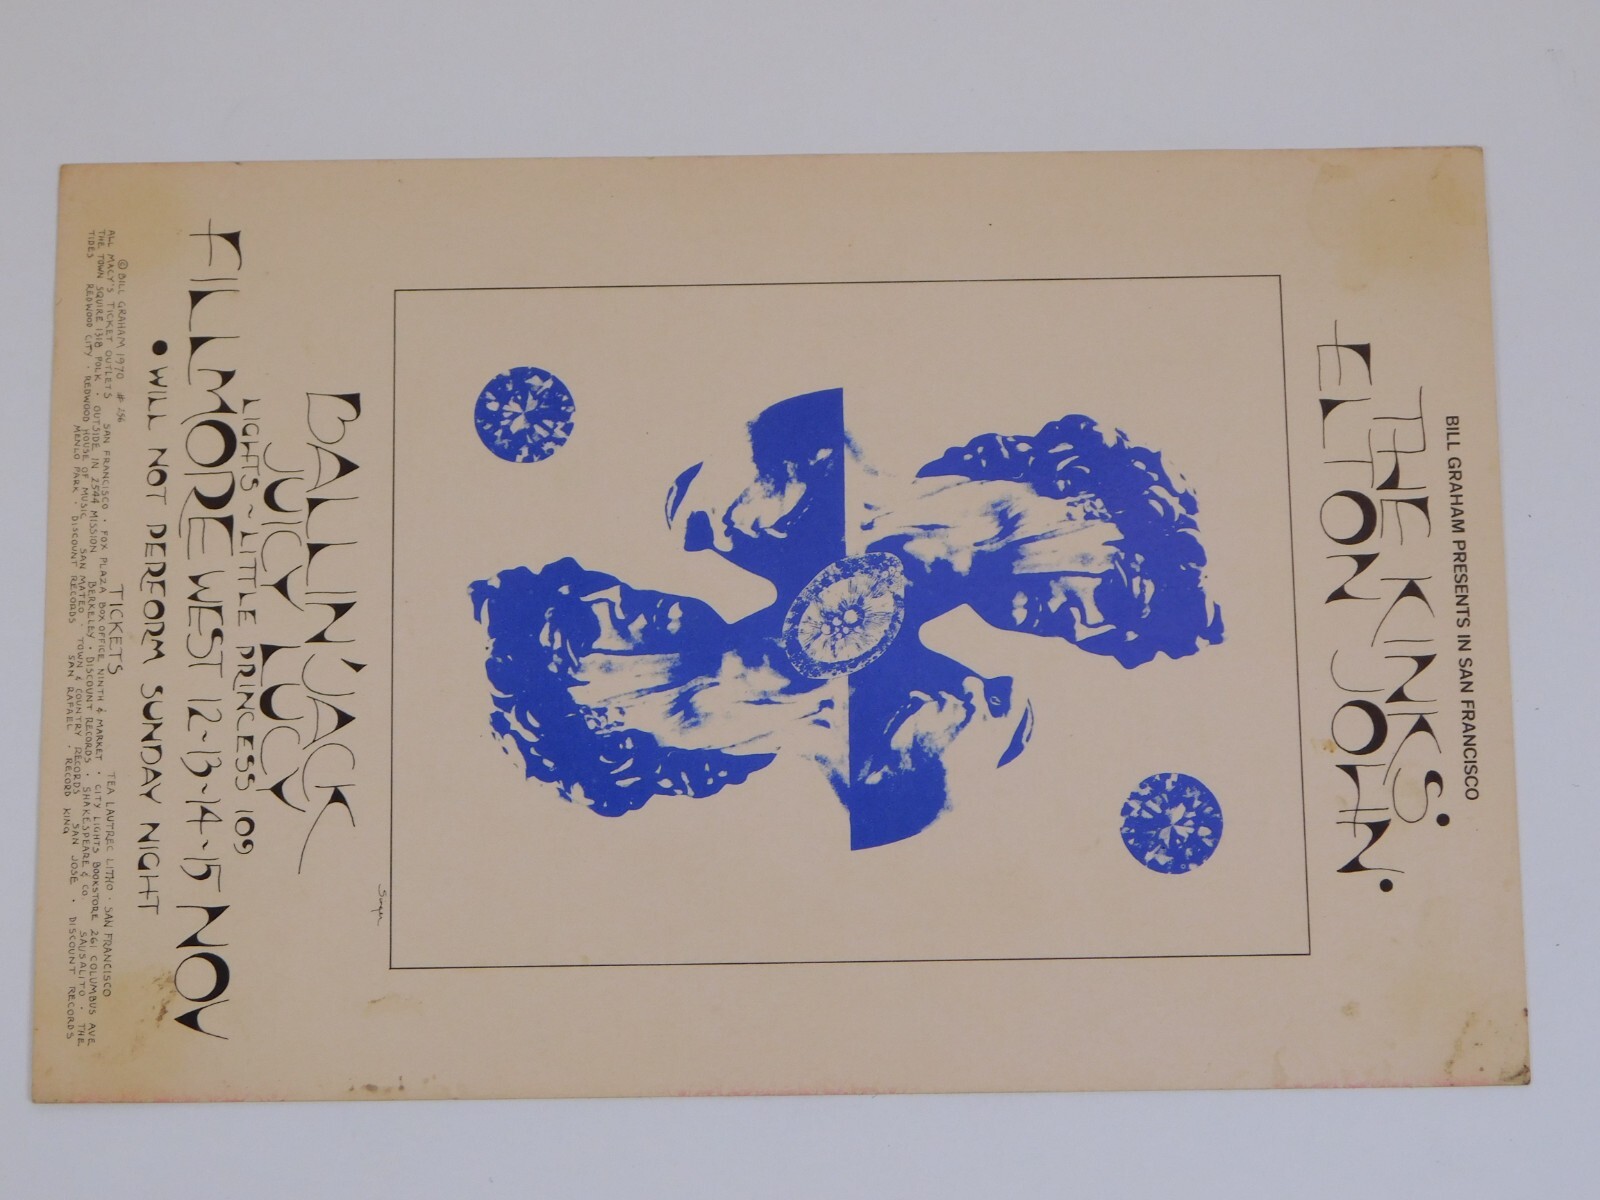 BILL GRAHAM PRESENTS IN SAN FRANCISCO
THE KINKS •
ELTON JOHN •
Singer
BALLIN' JACK
JUICY LUCY
LIGHTS ~ LITTLE PRINCESS 109
FILLMORE WEST 12~13~14~15 NOV
• WILL NOT PERFORM SUNDAY NIGHT
© BILL GRAHAM 1970 # 256 TICKETS TEA LAUTREC LITHO · SAN FRANCISCO
ALL MACY'S TICKET OUTLETS SAN FRANCISCO · FOX PLAZA BOX OFFICE NINTH & MARKET · CITY LIGHTS BOOKSTORE 261 COLUMBUS AVE
THE TOWN SQUIRE 1318 POLK · OUTSIDE IN 2544 MISSION BERKELEY · DISCOUNT RECORDS · SHAKESPEARE & CO. SAUSALITO · THE
TIDES REDWOOD CITY · REDWOOD HOUSE OF MUSIC SAN MATEO · TOWN & COUNTRY RECORDS SAN JOSE · DISCOUNT RECORDS
MENLO PARK · DISCOUNT RECORDS SAN RAFAEL · RECORD KING